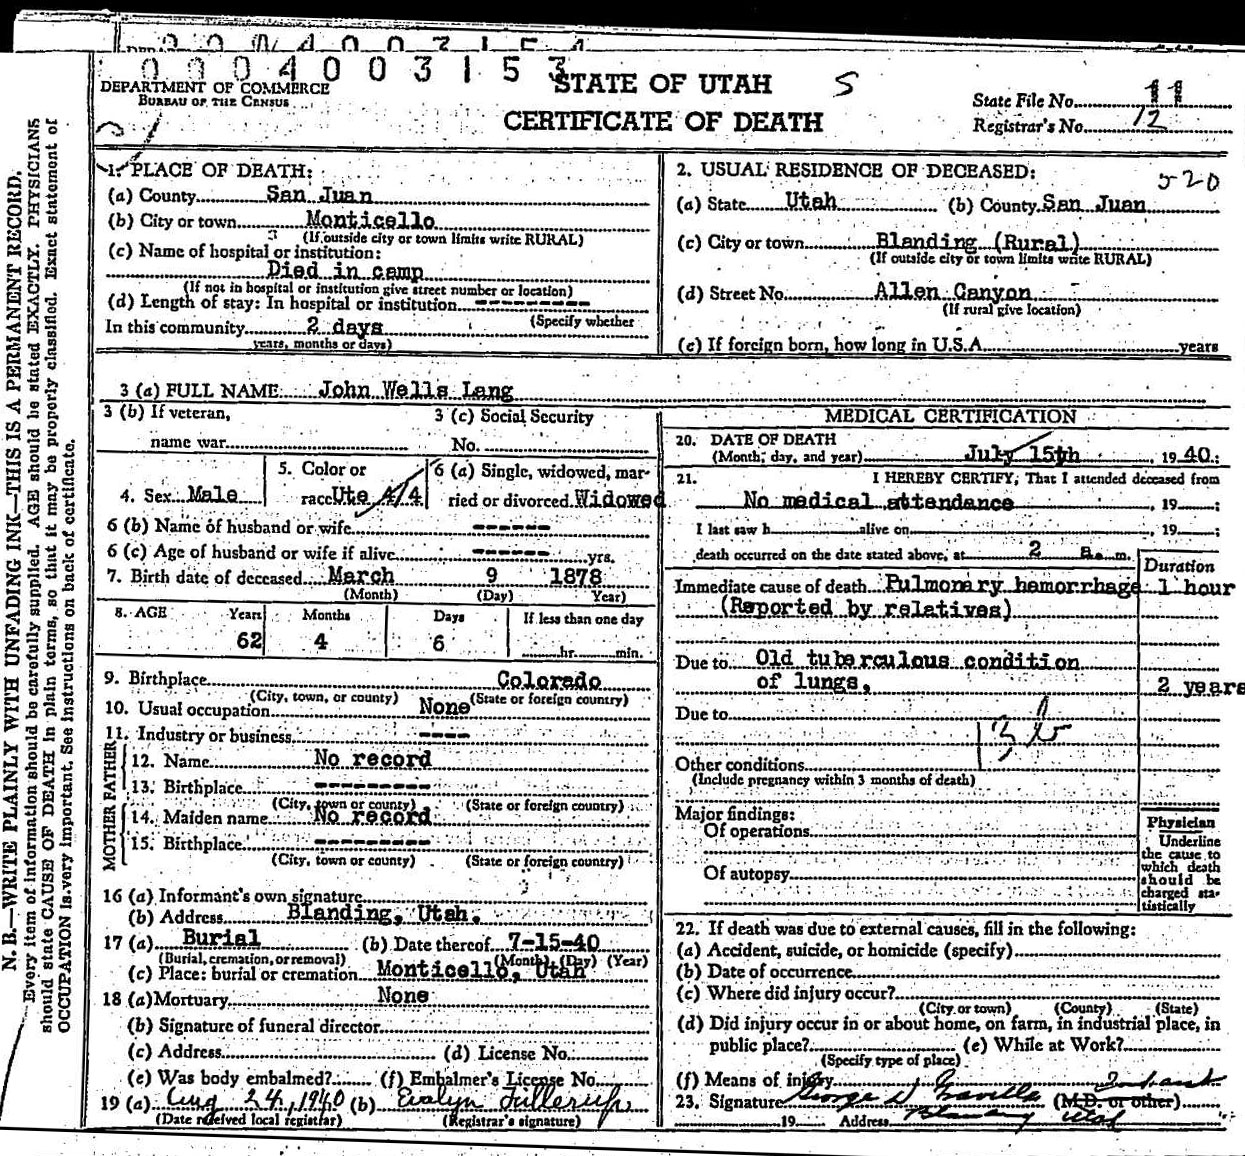 0004003153
DEPARTMENT OF COMMERCE
BUREAU OF THE CENSUS
STATE OF UTAH
CERTIFICATE OF DEATH
S
State File No. 11
Registrar's No. 12
1. PLACE OF DEATH:
(a) County San Juan
(b) City or town Monticello
(If outside city or town limits write RURAL)
(c) Name of hospital or institution:
Died in camp
(If not in hospital or institution give street number or location)
(d) Length of stay: In hospital or institution --------
(Specify whether
In this community 2 days
years, months or days)
2. USUAL RESIDENCE OF DECEASED:
520
(a) State Utah (b) County San Juan
(c) City or town Blanding (Rural)
(If outside city or town limits write RURAL)
(d) Street No. Allen Canyon
(If rural give location)
(e) If foreign born, how long in U.S.A. years
3 (a) FULL NAME John Wells Lang
3 (b) If veteran, 3 (c) Social Security
name war No.
4. Sex Male
5. Color or race Ute 4/4
6 (a) Single, widowed, married or divorced Widowed
6 (b) Name of husband or wife ------
6 (c) Age of husband or wife if alive ------ yrs.
7. Birth date of deceased March 9 1878
(Month) (Day) Year)
8. AGE Years Months Days If less than one day
62 4 6 hr. min.
9. Birthplace Colorado
(City, town, or county) (State or foreign country)
10. Usual occupation None
11. Industry or business ----
FATHER
12. Name No record
13. Birthplace ---------
(City, town or county) (State or foreign country)
MOTHER
14. Maiden name No record
15. Birthplace ---------
(City, town or county) (State or foreign country)
16 (a) Informant's own signature
(b) Address Blanding, Utah.
17 (a) Burial (b) Date thereof 7-15-40
(Burial, cremation, or removal) (Month) (Day) (Year)
(c) Place: burial or cremation Monticello, Utah
18 (a) Mortuary None
(b) Signature of funeral director
(c) Address (d) License No.
(e) Was body embalmed? (f) Embalmer's License No.
19 (a) Aug 24, 1940 (b) Evalyn Fullerup
(Date received local registrar) (Registrar's signature)
MEDICAL CERTIFICATION
20. DATE OF DEATH
(Month, day, and year) July 15th, 1940:
21. I HEREBY CERTIFY, That I attended deceased from
No medical attendance, 19 ;
I last saw h alive on , 19 ;
death occurred on the date stated above, at 2 a. m.
Duration
Immediate cause of death Pulmonary hemorrhage 1 hour
(Reported by relatives)
Due to Old tuberculous condition
of lungs, 2 years
Due to
13 b
Other conditions
(Include pregnancy within 3 months of death)
Major findings:
Of operations
Of autopsy
Physician
Underline
the cause to
which death
should be
charged sta-
tistically
22. If death was due to external causes, fill in the following:
(a) Accident, suicide, or homicide (specify)
(b) Date of occurrence
(c) Where did injury occur?
(City or town) (County) (State)
(d) Did injury occur in or about home, on farm, in industrial place, in
public place? (e) While at Work?
(Specify type of place)
(f) Means of injury
23. Signature George (M.D. or other)
19 Address Blanding Utah
N. B.—WRITE PLAINLY WITH UNFADING INK—THIS IS A PERMANENT RECORD.
Every item of information should be carefully supplied. AGE should be stated EXACTLY. PHYSICIANS
should state CAUSE OF DEATH in plain terms, so that it may be properly classified. Exact statement of
OCCUPATION is very important. See instructions on back of certificate.